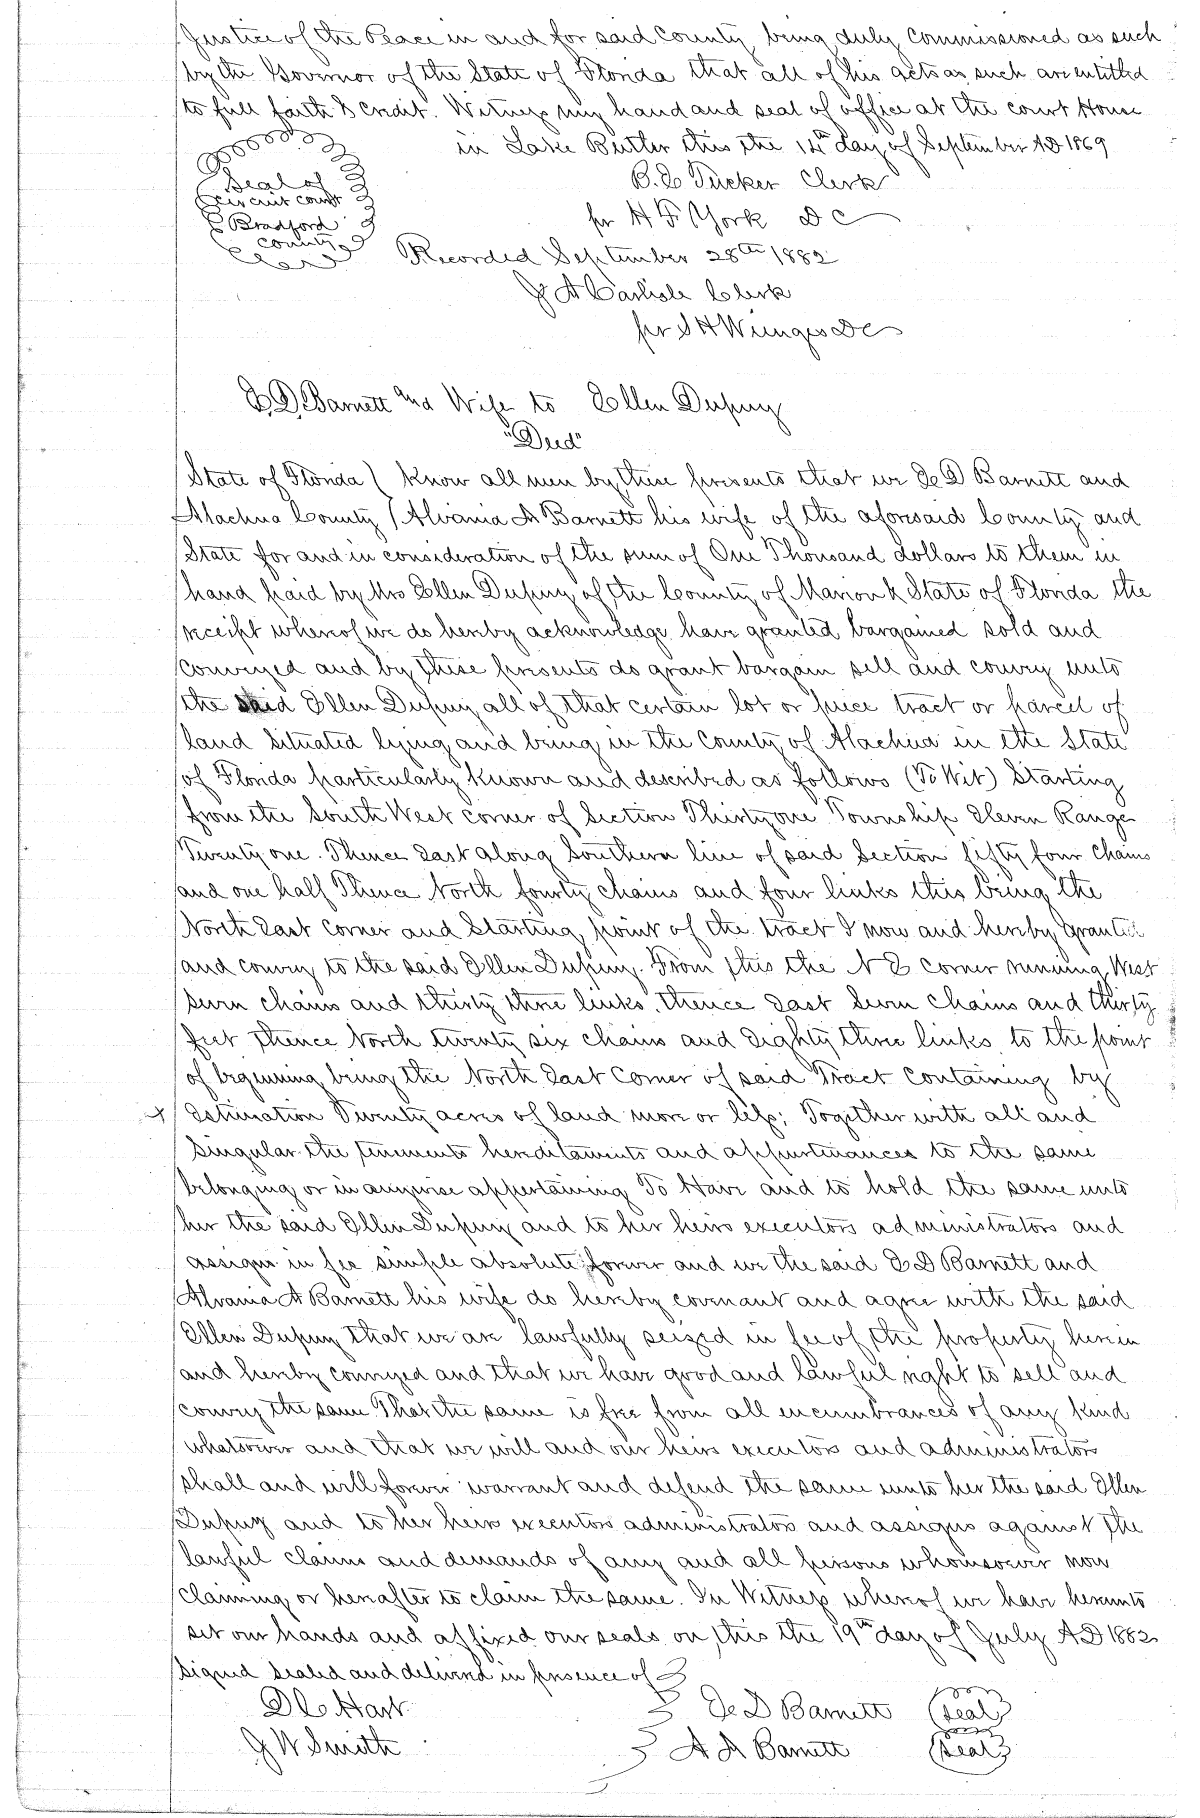 Justice of the Peace in and for said County, being duly Commissioned as such
by the Governor of the State of Florida that all of his acts as such are entitled
to full faith & credit. Witness my hand and seal of office at the court House
in Lake Butler this the 14th day of September AD 1869
Seal of
circuit court
Bradford
County
B. Tucker Clerk
pr H F York D C
Recorded September 28th 1882
J A Carlisle Clerk
pr S H Wienges DC
E D Barnett and Wife to Ellen Dupuy
"Deed"
State of Florida ( Know all men by these presents that we E D Barnett and
Alachua County / Alvania A Barnett his wife of the aforesaid County and
State for and in consideration of the sum of One Thousand dollars to them in
hand paid by Mrs Ellen Dupuy of the County of Marion & State of Florida the
receipt whereof we do hereby acknowledge have granted bargained sold and
conveyed and by these presents do grant bargain sell and convey unto
the said Ellen Dupuy all of that certain lot or piece tract or parcel of
land situated lying and being in the County of Alachua in the State
of Florida particularly known and described as follows (To Wit) Starting
from the South West corner of Section Thirty one Township Eleven Range
Twenty one. Thence East along Southern line of said Section fifty four chains
and one half Thence North fourty chains and four links this being the
North East Corner and Starting point of the tract I now and hereby Granted
and convey to the said Ellen Dupuy. From this the N E corner running West
seven chains and thirty three links, thence East seven chains and thirty
feet thence North twenty six chains and Eighty three links to the point
of beginning being the North East Corner of said Tract Containing by
Estimation Twenty acres of land more or less; Together with all and
Singular the tenements hereditaments and appurtenances to the same
belonging or in anywise appertaining To Have and to hold the same unto
her the said Ellen Dupuy and to her heirs executors administrators and
assigns in fee simple absolute forever and we the said E D Barnett and
Alvania A Barnett his wife do hereby covenant and agree with the said
Ellen Dupuy that we are lawfully seized in fee of the property herein
and hereby conveyed and that we have good and lawful right to sell and
convey the same That the same is free from all encumbrances of any kind
whatsoever and that we will and our heirs executors and administrators
shall and will forever warrant and defend the same unto her the said Ellen
Dupuy and to her heirs executors administrators and assigns against the
lawful claims and demands of any and all persons whomsoever now
claiming or hereafter to claim the same. In Witness whereof we have hereunto
set our hands and affixed our seals on this the 19th day of July AD 1882
Signed sealed and delivered in presence of
D C Hart E D Barnett (Seal)
J W Smith A A Barnett (Seal)